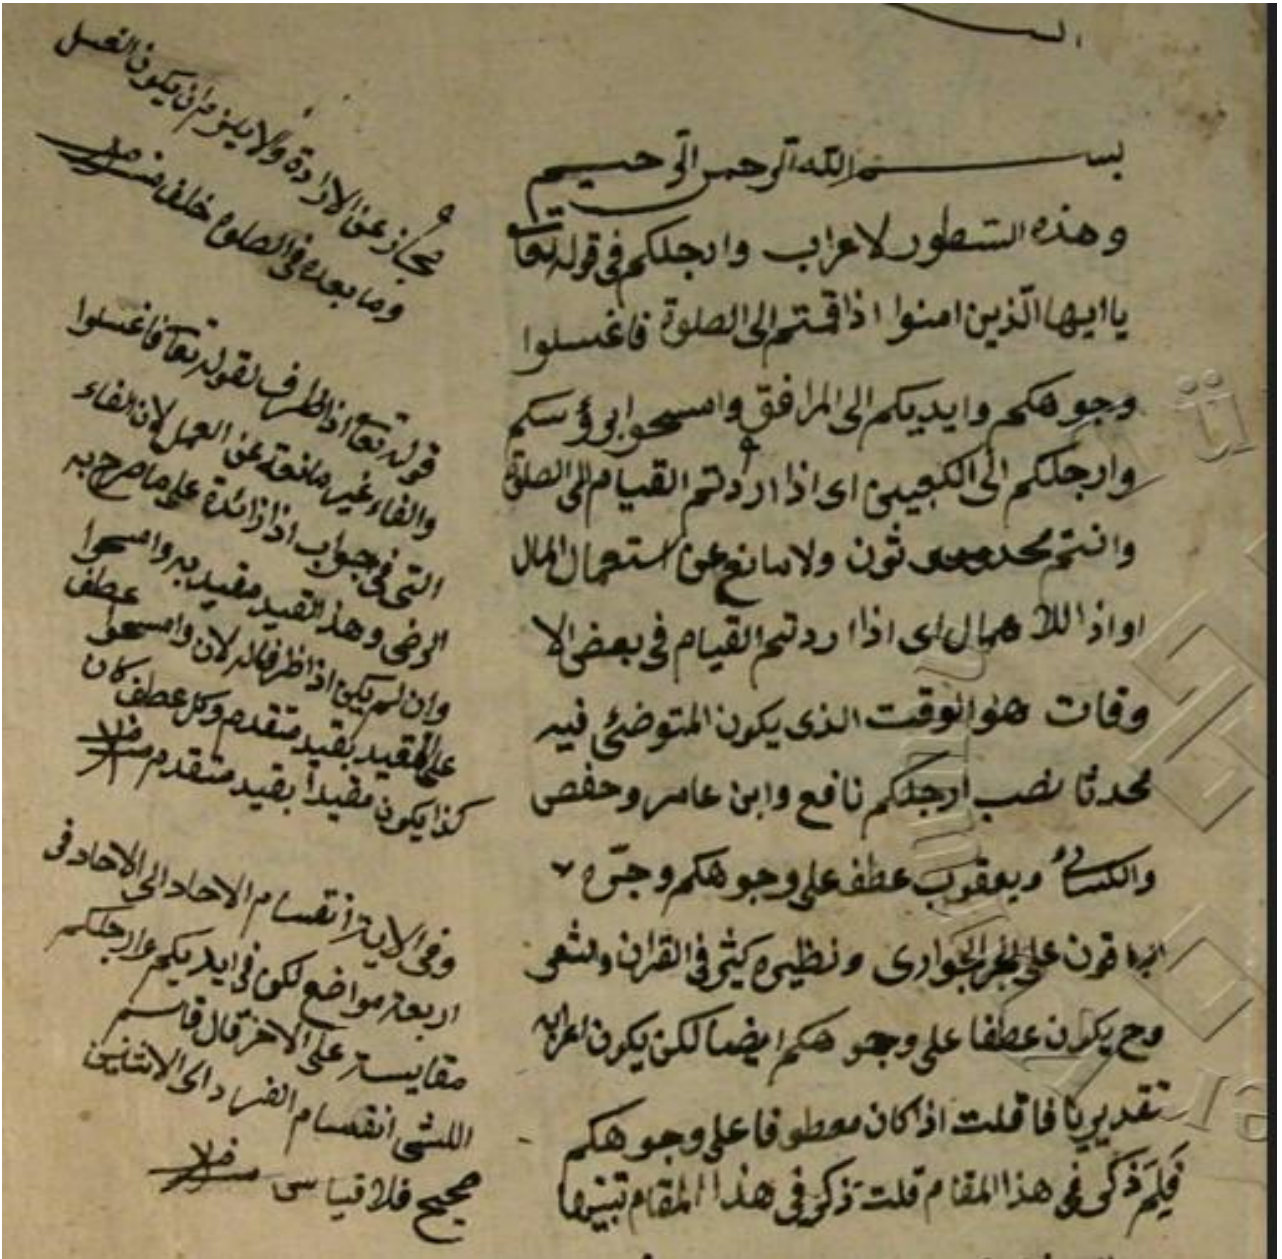 بسم الله الرحمن الرحيم
وهذه السطور لاعراب وارجلكم فى قوله تعا
ياايها الذين امنوا اذا قمتم الى الصلوة فاغسلوا
وجوهكم وايديكم الى المرافق وامسحوا برؤسكم
وارجلكم الى الكعبين اى اذا اردتم القيام الى الصلوة
وانتم محدثون ولا مانع عن استعمال الماء
او اذا للاهمال اى اذا اردتم القيام فى بعض الا
وقات هو الوقت الذى يكون المتوضئ فيه
محدثا نصب ارجلكم نافع وابن عامر وحفص
والكسائى ويعقوب عطف على وجوهكم وجره
الباقون على الجر الجوارى ونظيره كثير فى القران والشعر
وح يكون عطفا على وجوهكم ايضا لكن يكون اعرابه
تقديريا فان قلت اذا كان معطوفا على وجوهكم
فلم ذكر فى هذا المقام قلت ذكر فى هذا المقام تبنيها
مجاز عن الارادة والا يلزم ان يكون الغسل
وما بعده فى الصلوة خلف منه
قوله تعا اذا ظرف لقوله تعا فاغسلوا
والفاء غير مانعة عن العمل لان الفاء
التى فى جواب اذا زائدة على ما صرح به
الرضى وهذا القيد مقيد به وامسحوا
وان لم يكن اذا ظرفا له لان وامسحوا عطف
على المقيد بقيد متقدم وكل عطف كان
كذا يكون مقيدا بقيد متقدم منه
وفى الاية انقسام الاحاد الى الاحاد فى
اربعة مواضع لكن فى ايديكم وارجلكم
مقايسة على الاخر قال قاسم
الليثى انقسام الفراد الى الاثنين
صحيح فلا قياس منه